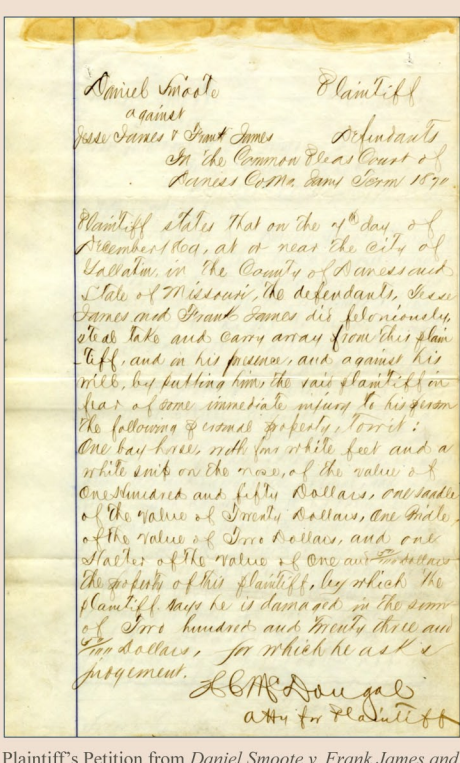 Daniel Smoote Plaintiff
against
Jesse James & Frank James Defendants
In the Common Pleas Court of
Daviess Co Mo. Term 1870.
Plaintiff states that on the 7th day of
December 1869, at or near the city of
Gallatin, in the County of Daviess and
State of Missouri, the defendants, Jesse
James and Frank James did feloniously,
steal take and carry array from this plain
tiff, and in his presence, and against his
will, by putting him, the said plaintiff in
fear of some immediate injury to his person
the following personal property, towit:
One bay horse, with four white feet and a
white snip on the nose, of the value of
One Hundred and fifty Dollars, one saddle
of the value of Twenty Dollars, One Bridle
of the value of Two Dollars, and one
Halter of the value of One and 50/100 dollars
the property of this plaintiff, by which the
plaintiff says he is damaged in the sum
of Two hundred and twenty three and
50/100 Dollars, for which he asks
judgement.
H C McDougal
atty for Plaintiff
Plaintiff's Petition from Daniel Smoote v. Frank James and